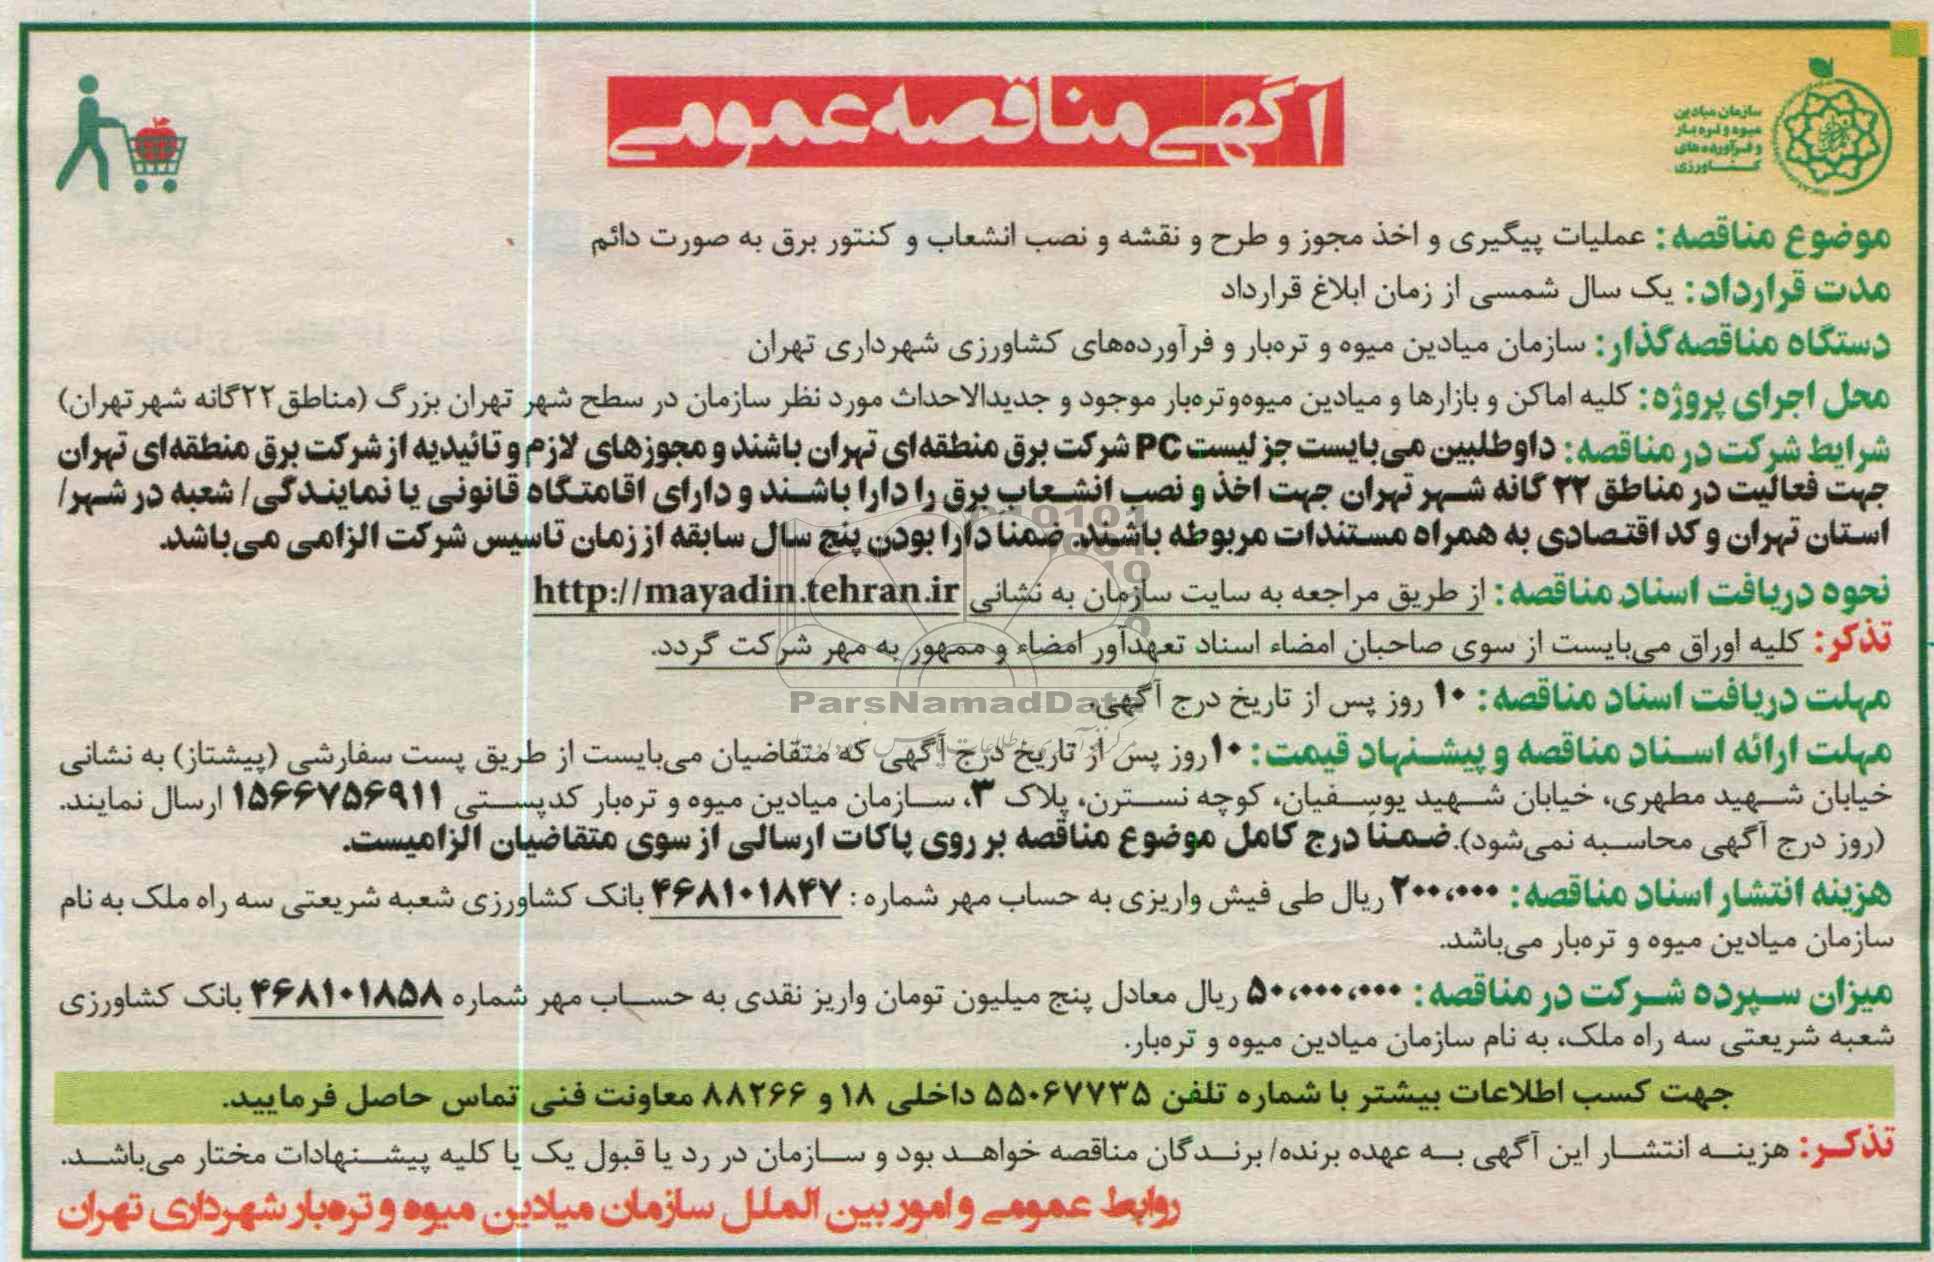 سازمان میادین
میوه و تره بار
و فرآورده‌های
کشاورزی
آگهی مناقصه عمومی
موضوع مناقصه: عملیات پیگیری و اخذ مجوز و طرح و نقشه و نصب انشعاب و کنتور برق به صورت دائم
مدت قرارداد: یک سال شمسی از زمان ابلاغ قرارداد
دستگاه مناقصه‌گذار: سازمان میادین میوه و تره‌بار و فرآورده‌های کشاورزی شهرداری تهران
محل اجرای پروژه: کلیه اماکن و بازارها و میادین میوه‌وتره‌بار موجود و جدیدالاحداث مورد نظر سازمان در سطح شهر تهران بزرگ (مناطق ۲۲گانه شهر تهران)
شرایط شرکت در مناقصه: داوطلبین می‌بایست جز لیست PC شرکت برق منطقه‌ای تهران باشند و مجوزهای لازم و تائیدیه از شرکت برق منطقه‌ای تهران
جهت فعالیت در مناطق ۲۲ گانه شهر تهران جهت اخذ و نصب انشعاب برق را دارا باشند و دارای اقامتگاه قانونی یا نمایندگی/ شعبه در شهر/
استان تهران و کد اقتصادی به همراه مستندات مربوطه باشند. ضمنا دارا بودن پنج سال سابقه از زمان تاسیس شرکت الزامی می‌باشد.
نحوه دریافت اسناد مناقصه: از طریق مراجعه به سایت سازمان به نشانی http://mayadin.tehran.ir
تذکر: کلیه اوراق می‌بایست از سوی صاحبان امضاء اسناد تعهدآور امضاء و ممهور به مهر شرکت گردد.
مهلت دریافت اسناد مناقصه: ۱۰ روز پس از تاریخ درج آگهی.
ParsNamadData
مهلت ارائه اسناد مناقصه و پیشنهاد قیمت: ۱۰روز پس از تاریخ درج آگهی که متقاضیان می‌بایست از طریق پست سفارشی (پیشتاز) به نشانی
خیابان شهید مطهری، خیابان شهید یوسفیان، کوچه نسترن، پلاک ۳، سازمان میادین میوه و تره‌بار کدپستی ۱۵۶۶۷۵۶۹۱۱ ارسال نمایند.
(روز درج آگهی محاسبه نمی‌شود). ضمناً درج کامل موضوع مناقصه بر روی پاکات ارسالی از سوی متقاضیان الزامیست.
هزینه انتشار اسناد مناقصه: ۲۰۰،۰۰۰ ریال طی فیش واریزی به حساب مهر شماره : ۴۶۸۱۰۱۸۴۷ بانک کشاورزی شعبه شریعتی سه راه ملک به نام
سازمان میادین میوه و تره‌بار می‌باشد.
میزان سپرده شرکت در مناقصه: ۵۰،۰۰۰،۰۰۰ ریال معادل پنج میلیون تومان واریز نقدی به حساب مهر شماره ۴۶۸۱۰۱۸۵۸ بانک کشاورزی
شعبه شریعتی سه راه ملک، به نام سازمان میادین میوه و تره‌بار.
جهت کسب اطلاعات بیشتر با شماره تلفن ۵۵۰۶۷۷۳۵ داخلی ۱۸ و ۸۸۲۶۶ معاونت فنی تماس حاصل فرمایید.
تذکر: هزینه انتشار این آگهی به عهده برنده/ برندگان مناقصه خواهد بود و سازمان در رد یا قبول یک یا کلیه پیشنهادات مختار می‌باشد.
روابط عمومی و امور بین الملل سازمان میادین میوه و تره‌بار شهرداری تهران